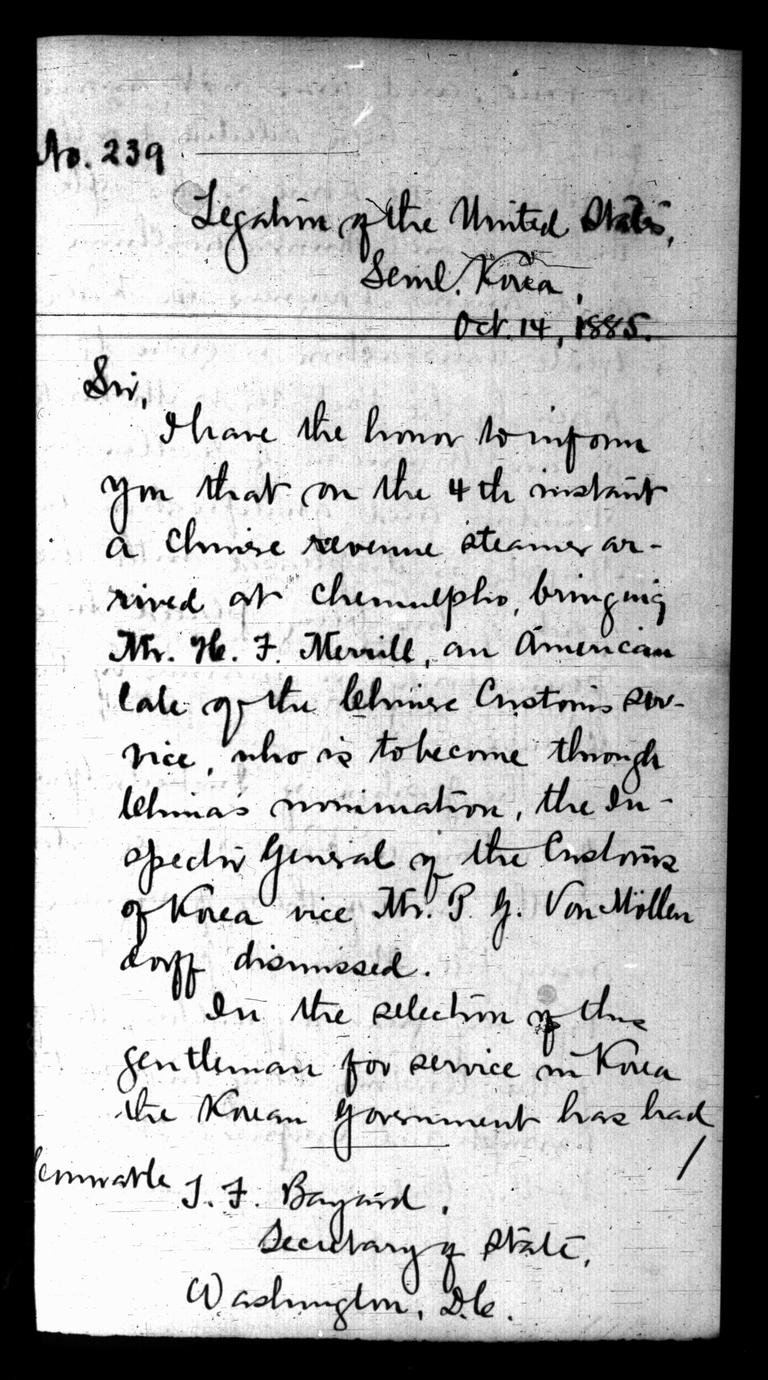 No. 239
Legation of the United States,
Seoul. Korea,
Oct. 14, 1885.
Sir,
I have the honor to inform
you that on the 4th instant
a Chinese revenue steamer ar-
rived at Chemulpho, bringing
Mr. H. F. Merrill, an American
late of the Chinese Customs ser-
vice, who is to become through
China's nomination, the In-
spector General of the Customs
of Korea vice Mr. P. G. Von Möllen
dorff dismissed.
In the selection of this
gentleman for service in Korea
the Korean Government has had
/
T. F. Bayard,
Secretary of State,
Washington, D.C.